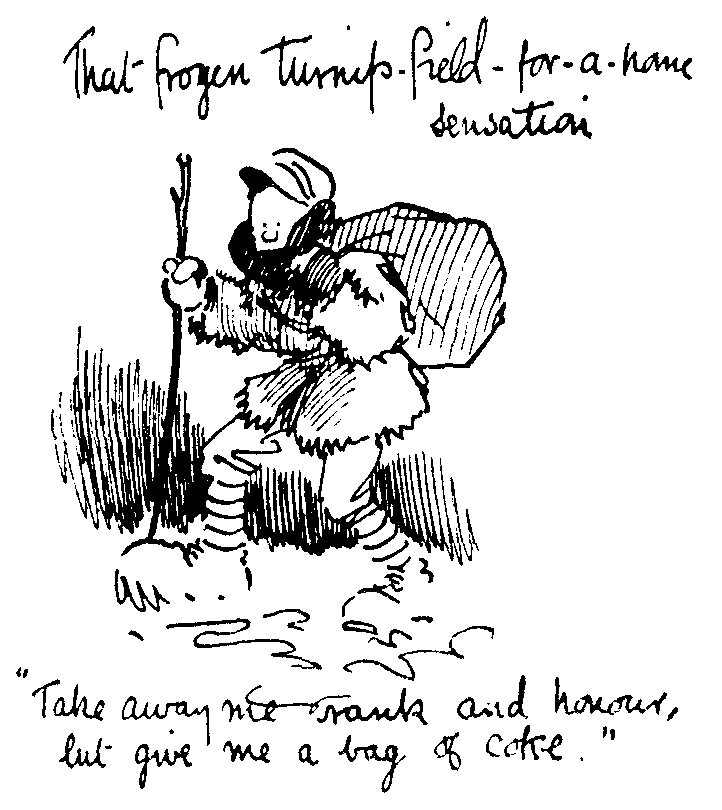 That frozen turnip-field-for-a-home
sensation
"Take away me rank and honour,
but give me a bag of coke."